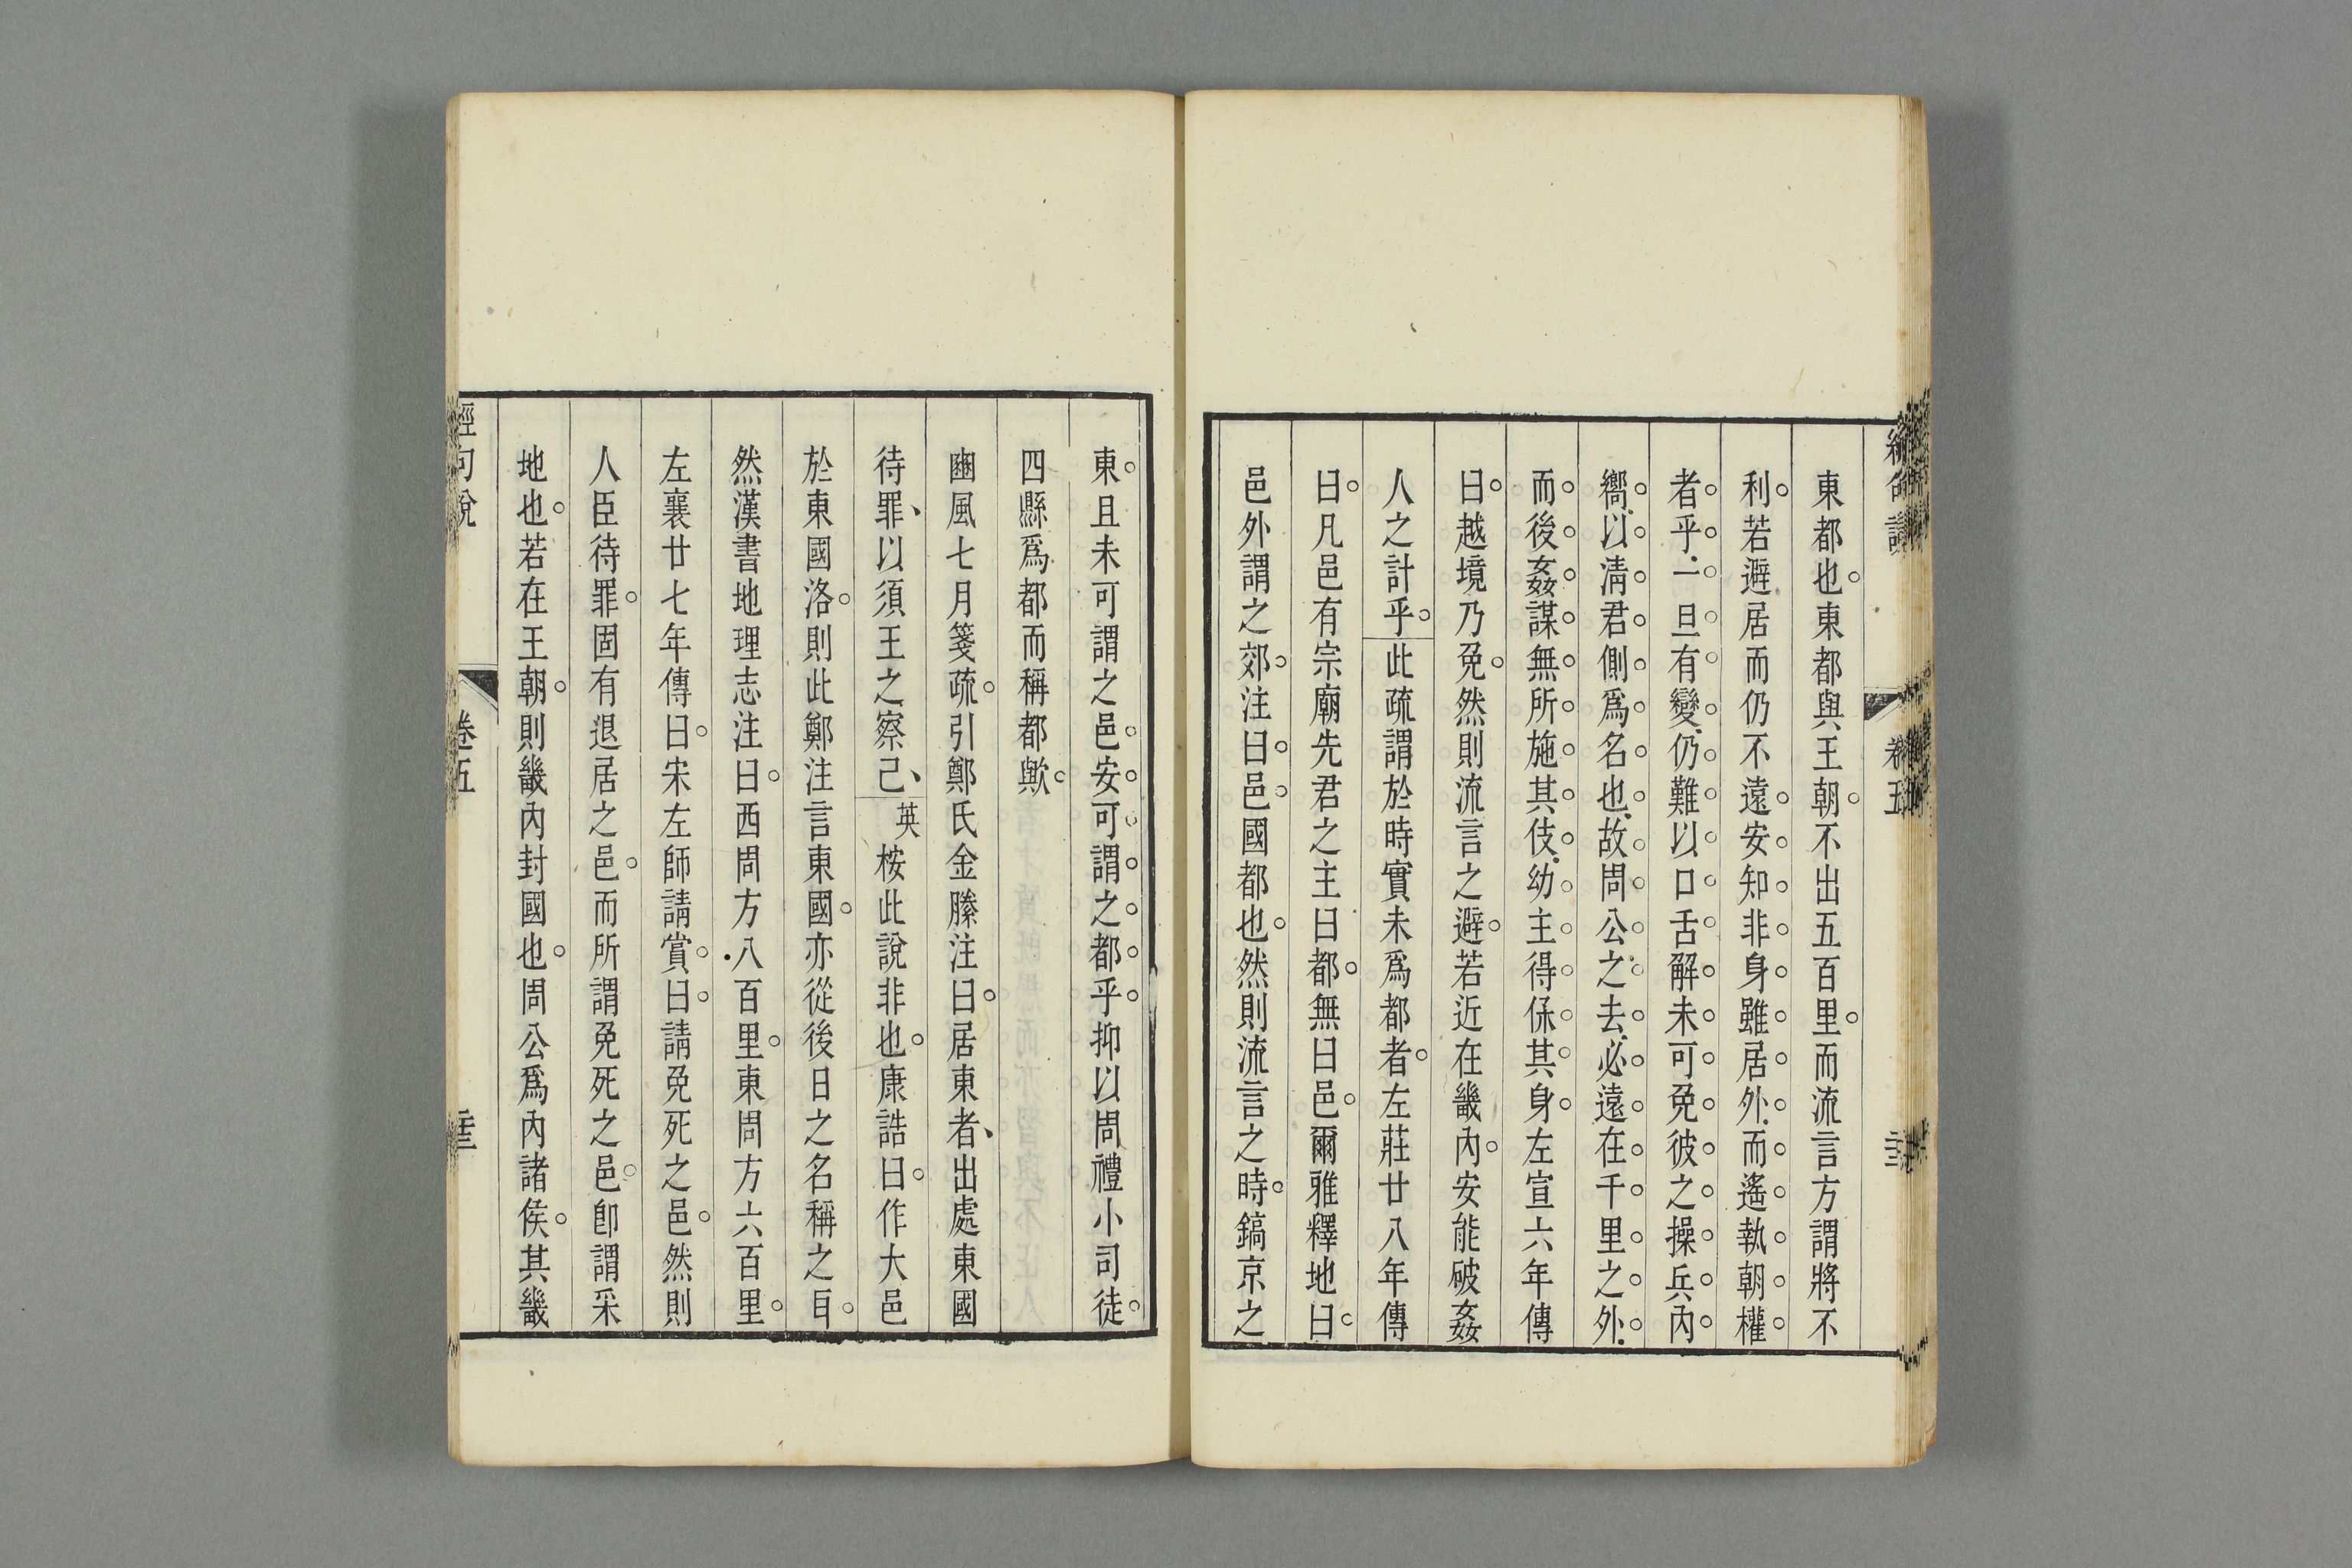 東都也東都與王朝不出五百里而流言方謂將不
利若遯居而仍不遠安知非身雖居外而遙執朝權
者乎一旦有變仍難以口舌解未可免彼之操兵內
嚮以清君側爲名也故周公之去必遠在千里之外
而後姦謀無所施其伎幼主得保其身左宣六年傳
曰越境乃免然則流言之避若近在畿內安能破姦
人之計乎此疏謂於時實未爲都者左莊廿八年傳
曰凡邑有宗廟先君之主曰都無曰邑爾雅釋地曰
邑外謂之郊注曰邑國都也然則流言之時鎬京之
東且未可謂之邑安可謂之都乎抑以周禮小司徒
四縣爲都而稱都歟
豳風七月箋疏引鄭氏金縢注曰居東者出處東國
待罪以須王之察己英桉此說非也康誥曰作大邑
於東國洛則此鄭注言東國亦從後日之名稱之耳
然漢書地理志注曰西周方八百里東周方六百里
左襄廿七年傳曰宋左師請賞曰請免死之邑然則
人臣待罪固有退居之邑而所謂免死之邑卽謂采
地也若在王朝則畿內封國也周公爲內諸侯其畿
經句說 卷五